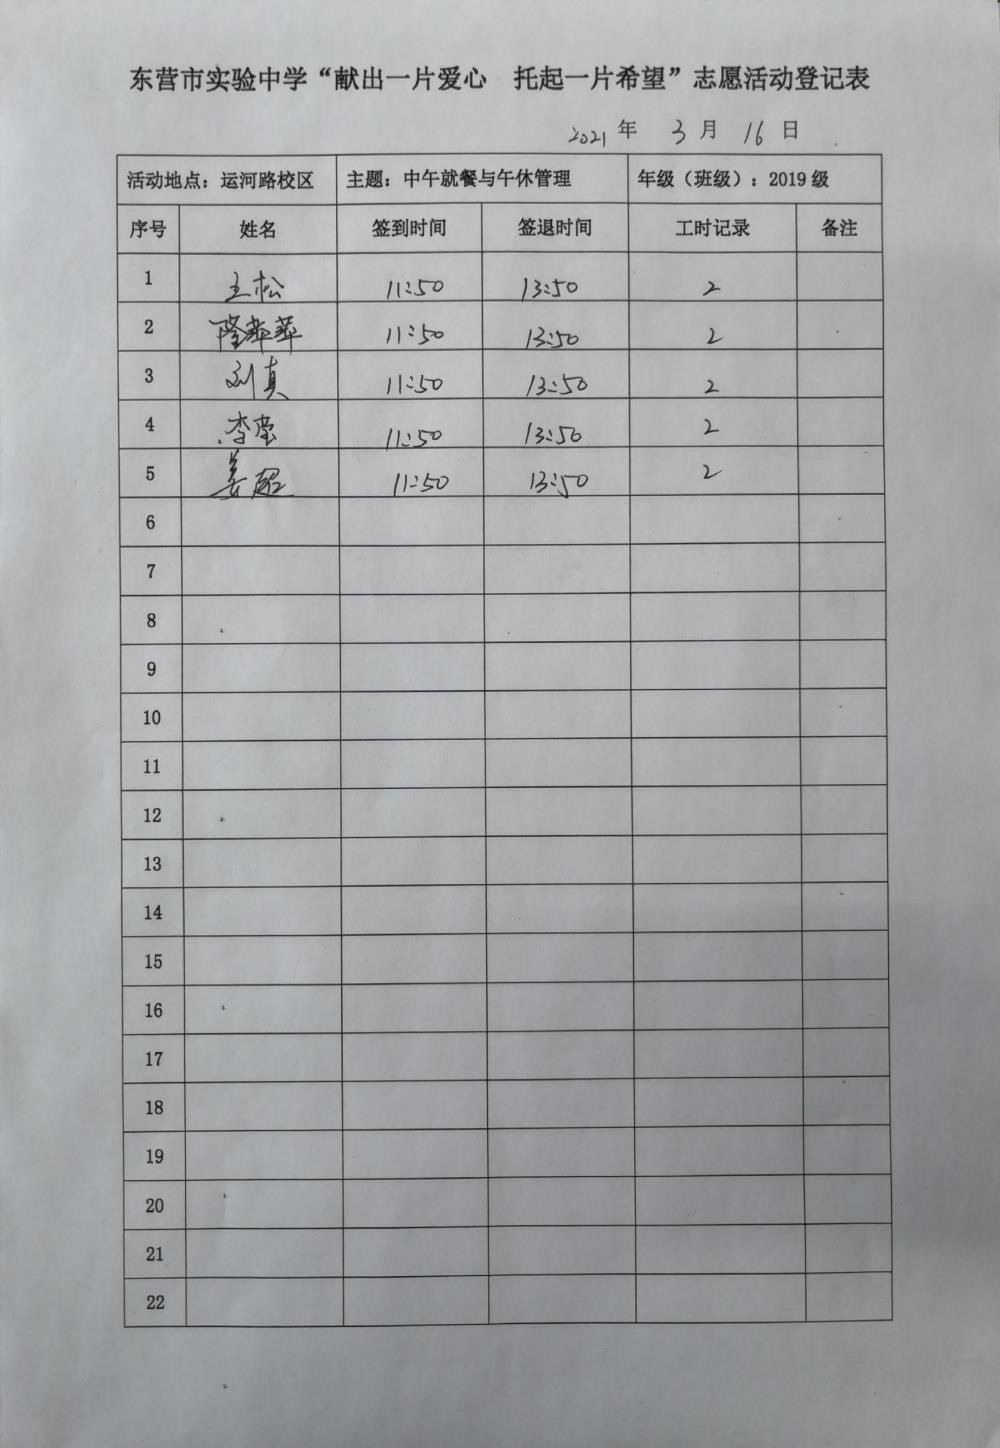 东营市实验中学“献出一片爱心 托起一片希望”志愿活动登记表
2021 年 3 月 16 日
活动地点：运河路校区 主题：中午就餐与午休管理 年级（班级）：2019 级
序号 姓名 签到时间 签退时间 工时记录 备注
1 王松 11:50 13:50 2
2 11:50 13:50 2
3 刘真 11:50 13:50 2
4 李莹 11:50 13:50 2
5 姜超 11:50 13:50 2
6
7
8
9
10
11
12
13
14
15
16
17
18
19
20
21
22